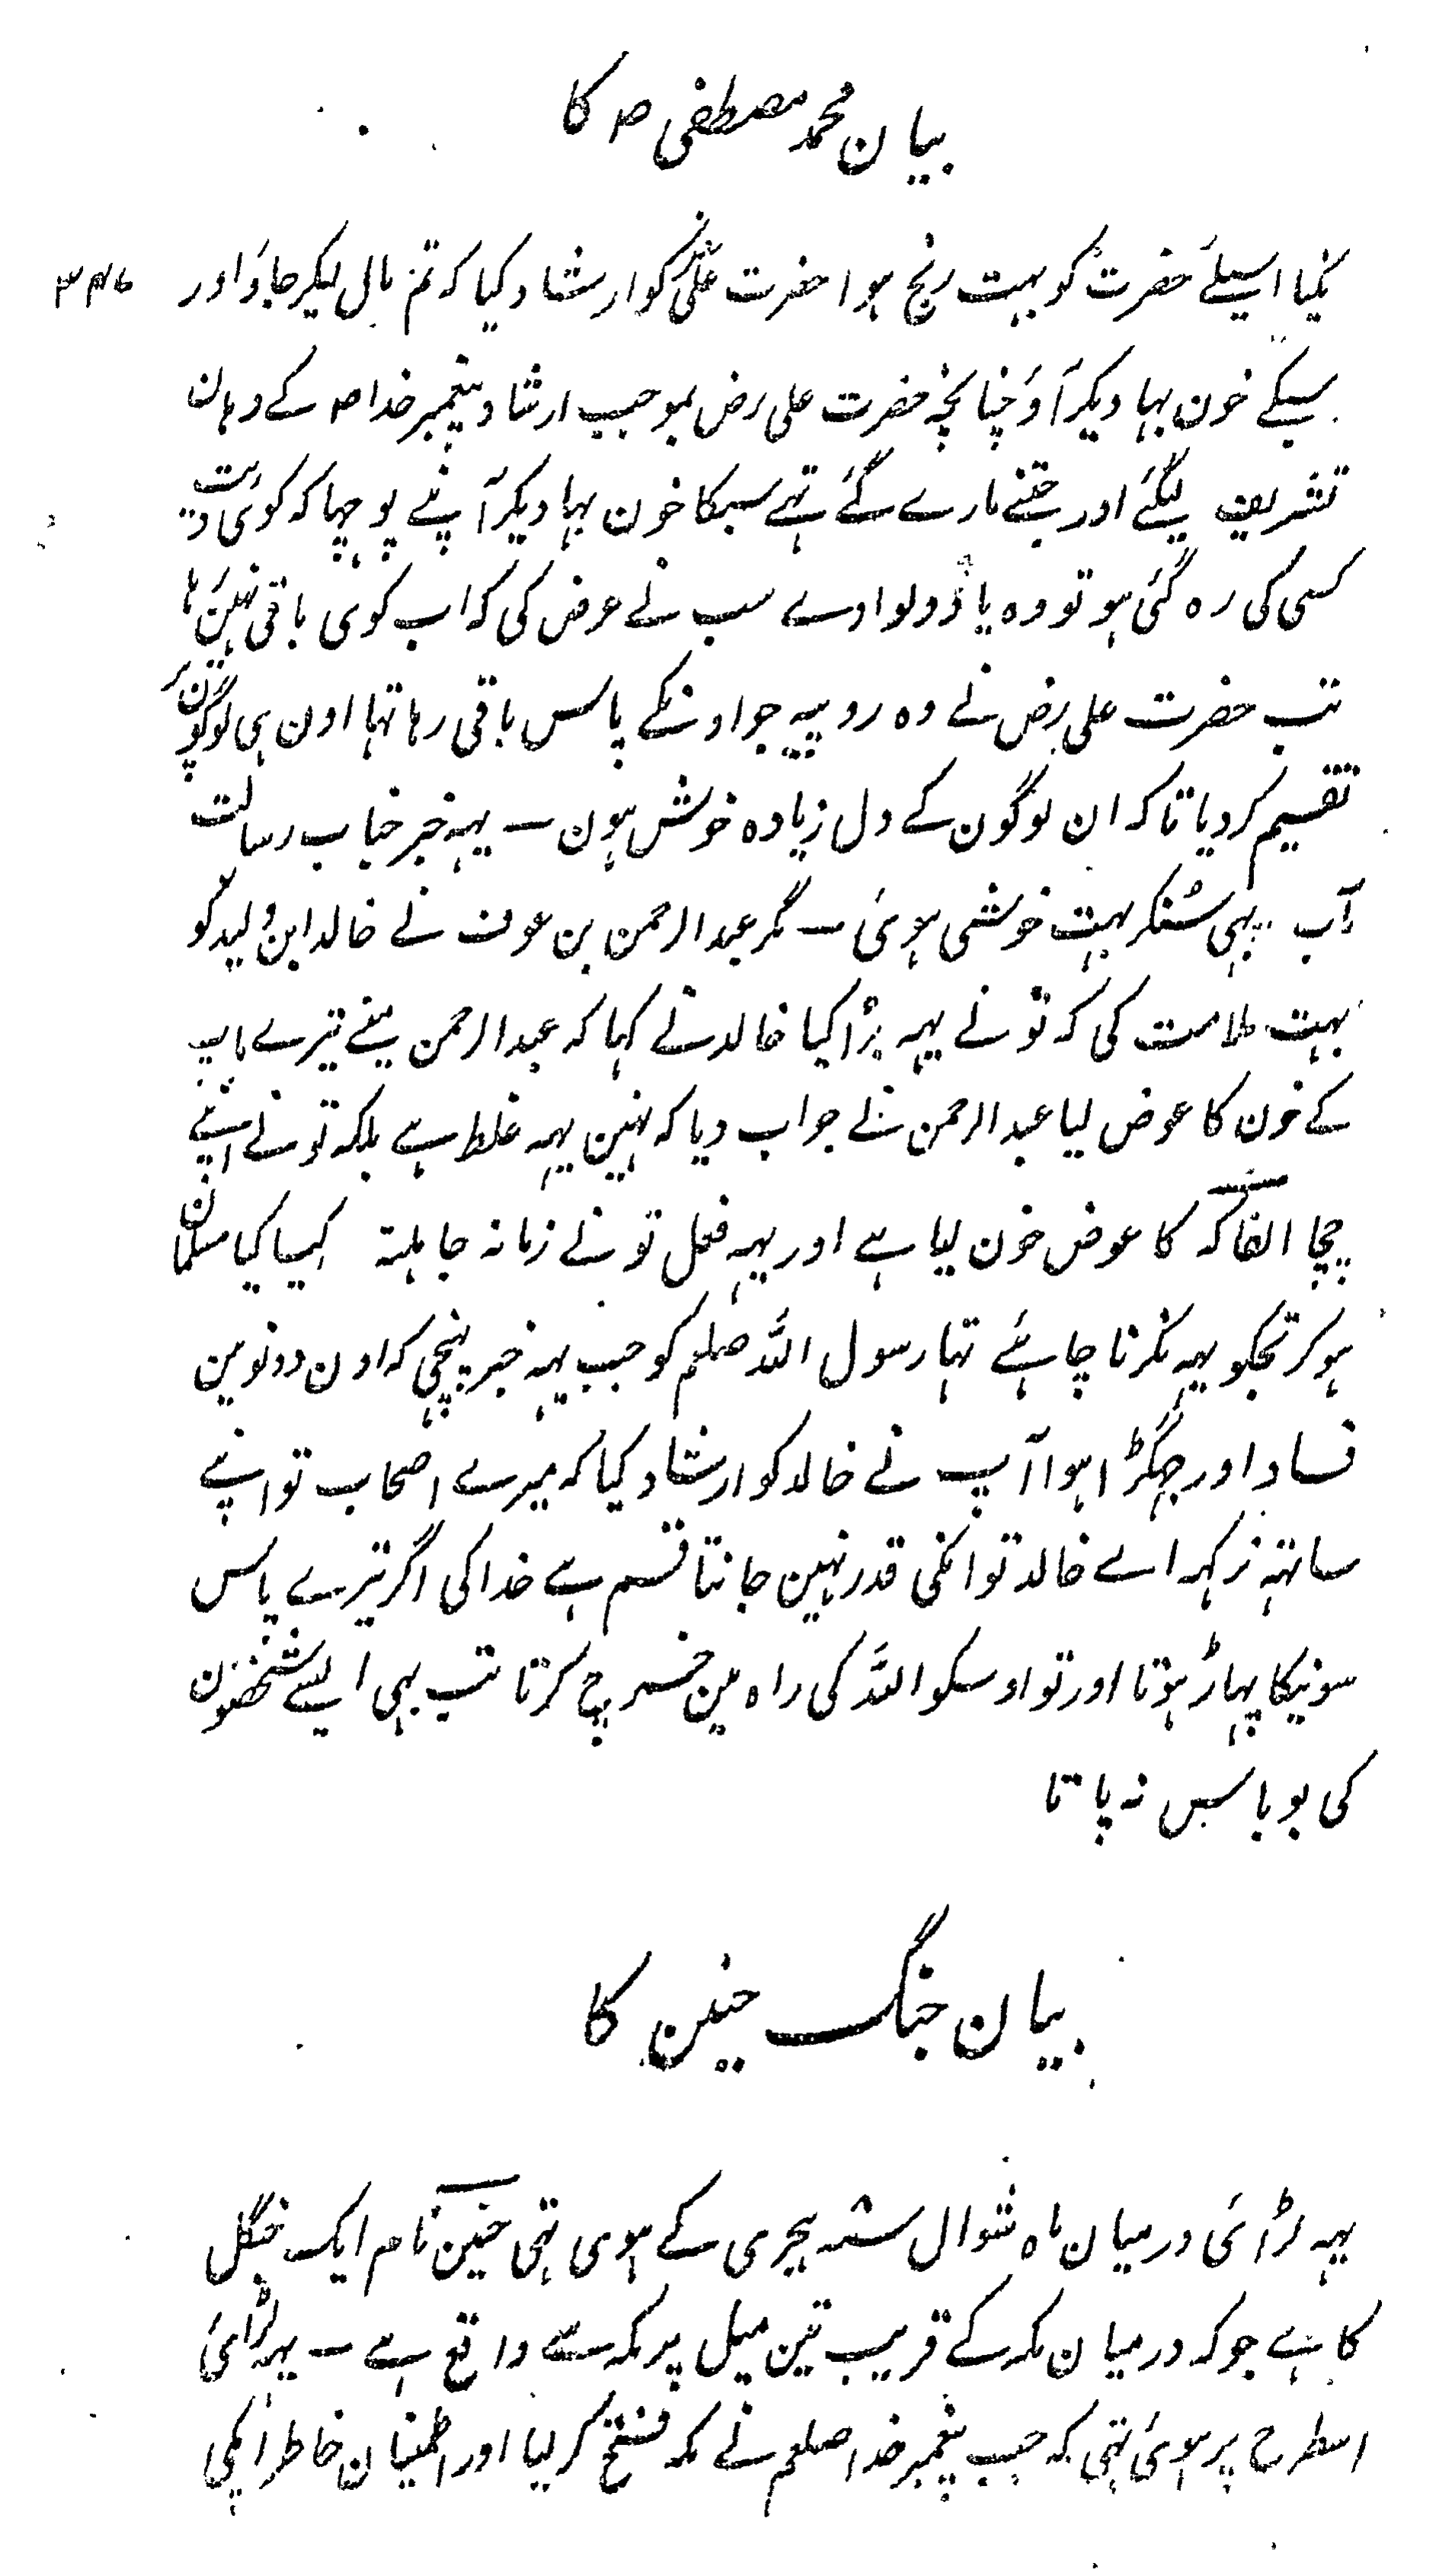 بیان محمد مصطفی ص کا
نکیا اسیلئے حضرت کو بہت رنج ہوا حضرت علیؓ کو ارشاد کیا کہ تم مال لیکر جاؤ اور
سبکے خون بہا دیکر آؤ چنانچہ حضرت علی رض بموجب ارشاد پیغمبر خدا ص کے وہان
تشریف لیگئے اور جتنے مارے گئے تہے سبکا خون بہا دیکر آپنے پوچہا کہ کوئی دیت
کسی کی رہ گئی ہو تو وہ یاد دلوا دے سب نے عرض کی کہ اب کوی باقی نہین رہا
تب حضرت علی رض نے وہ روپیہ جو اونکے پاس باقی رہا تہا اون ہی لوگونپر
تقسیم کر دیا تاکہ ان لوگون کے دل زیادہ خوش ہون – یہہ خبر جناب رسالت
مآب بہی سنکر بہت خوشی ہوئی – مگر عبد الرحمن بن عوف نے خالد ابن ولید کو
بہت ملامت کی کہ تو نے یہہ برُا کیا خالد نے کہا کہ عبد الرحمن مینے تیرے باپ
کے خون کا عوض لیا عبد الرحمن نے جواب دیا کہ نہین یہہ غلط ہے بلکہ تو نے اپنے
چچا الفاکہ کا عوض خون لیا ہے اور یہہ فعل تو نے زمانہ جاہلیۃ کیسا کیا مسلمان
ہو کر تجکو یہہ نکرنا چاہئے تہا رسول اللہ صلعم کو جب یہہ خبر پہنچی کہ اون دونو مین
فساد اور جہگڑا ہوا آپ نے خالد کو ارشاد کیا کہ میرے اصحاب تو اپنے
ساتہہ نہ کہہ اے خالد تو انکی قدر نہین جانتا قسم ہے خدا کی اگر تیرے پاس
سونیکا پہاڑ ہوتا اور تو اوسکو اللہ کی راہ مین خرچ کرتا تب بہی ایسے شخصون
کی بو باس نہ پاتا
بیان جنگ حنین کا
یہہ لڑائی درمیان ماہ شوال سنہ ہجری کے ہوی تہی حنین نام ایک جنگل
کا ہے جو کہ درمیان مکہ کے قریب تین میل پر مکہ سے واقع ہے – یہہ لڑائی
اسطرح پر ہوئی تہی کہ جب پیغمبر خدا صلعم نے مکہ فتح کر لیا اور اطمینان خاطر انکی